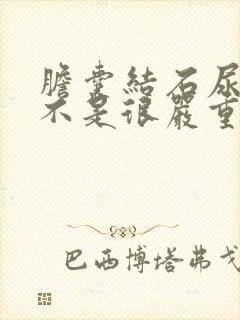 膽囊結石尿
不是很嚴重
巴西博塔弗戈